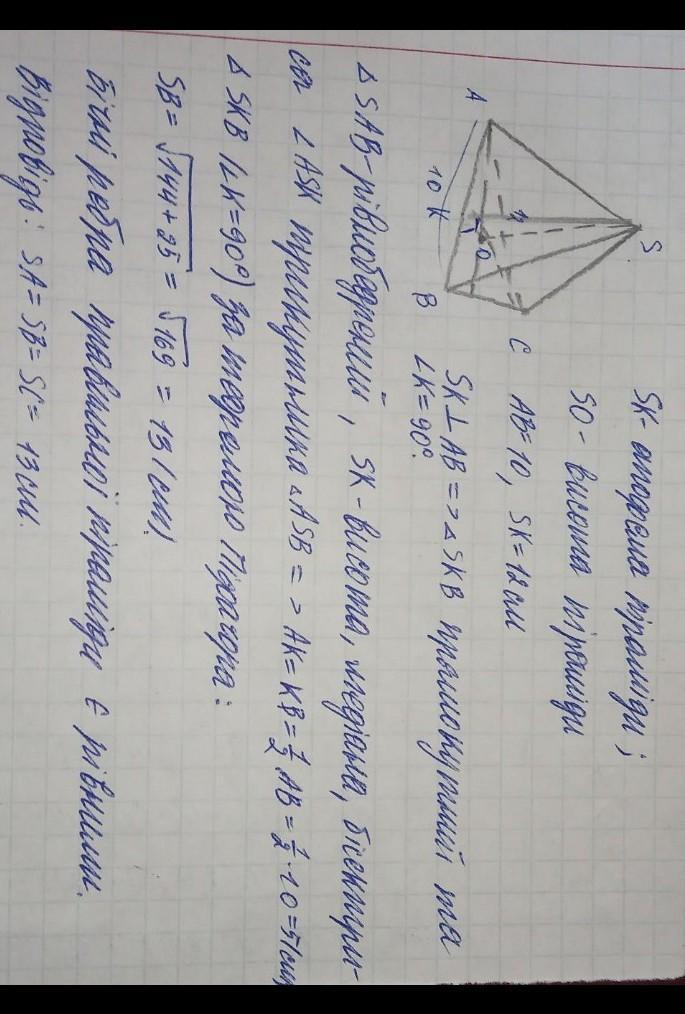 S
A
10
K
O
B
C
SK - апофема піраміди;
SO - висота піраміди
AB = 10, SK = 12 см
SK ⊥ AB => △ SKB прямокутний та
∠K = 90°.
△ SAB - рівнобедрений, SK - висота, медіана, бісектри-
са ∠ASK трикутника △ ASB => AK = KB = 1/2 AB = 1/2 · 10 = 5 (см)
△ SKB (∠K = 90°) за теоремою Піфагора:
SB = √144 + 25 = √169 = 13 (см)
Бічні ребра правильної піраміди є рівними.
Відповідь: SA = SB = SC = 13 см.